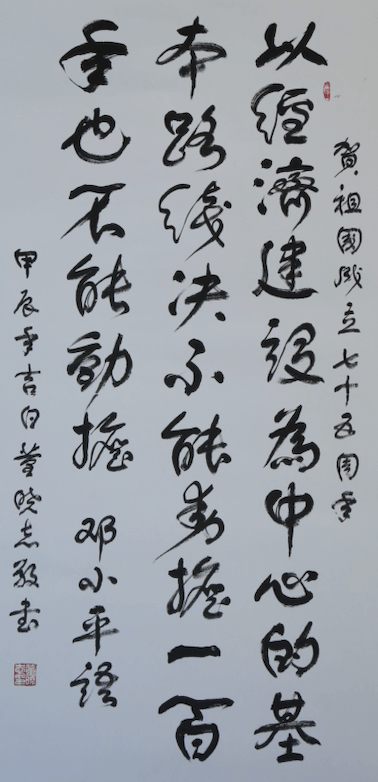 賀祖國成立七十五周年
以經濟建設為中心的基
本路綫决不能動摇一百
年也不能動摇 邓小平語
甲辰年吉日董晓志敬書